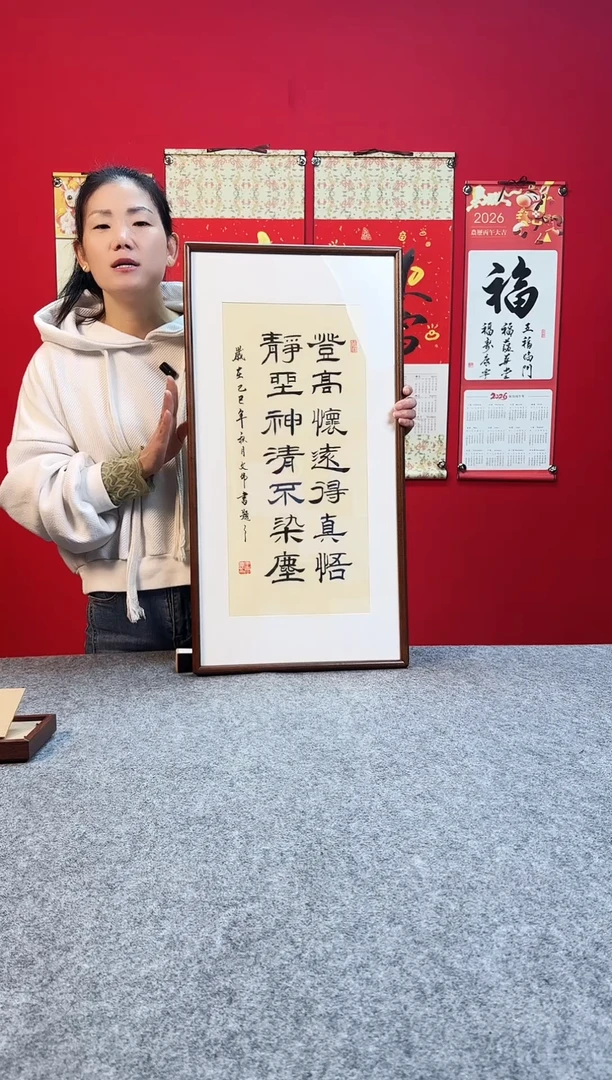 登高懷遠得真悟
靜坐神清不染塵
歲在乙巳年秋月文伟書題
2026
農曆丙午大吉
福
五福临門
福蕴华堂
福寿康宁
2026